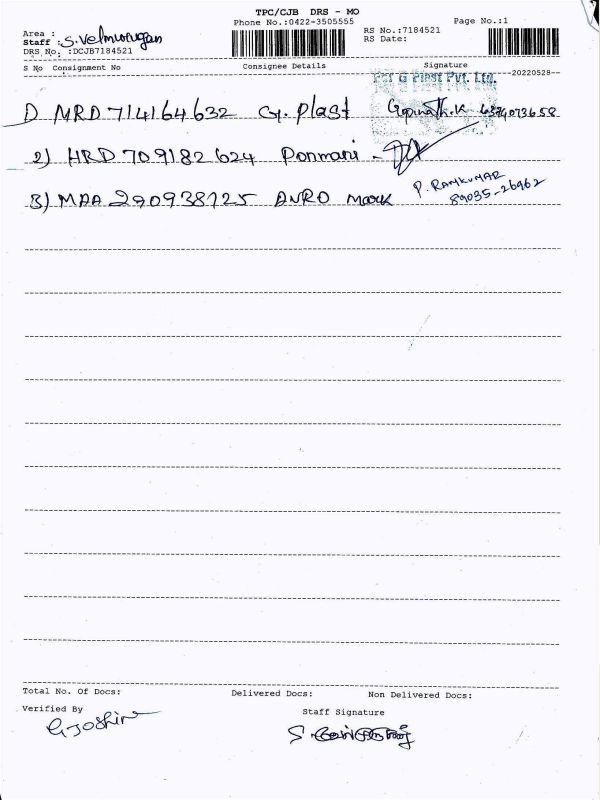 TPC/CJB DRS - MO
Phone No.:0422-3505555
Page No.:1
Area :
Staff : S. Velmurugan
DRS No. :DCJB7184521
RS No.:7184521
RS Date:
S No Consignment No Consignee Details Signature
--20220528--
For G Plast Pvt. Ltd.
1) MRD 714164632 G. Plast Gopinath.K 6374073658
2) HRD 709182624 Ponmani -
3) MAA 290938725 ANRO Mark P. RAMKUMAR
89035-26962
Total No. Of Docs: Delivered Docs: Non Delivered Docs:
Verified By
Staff Signature